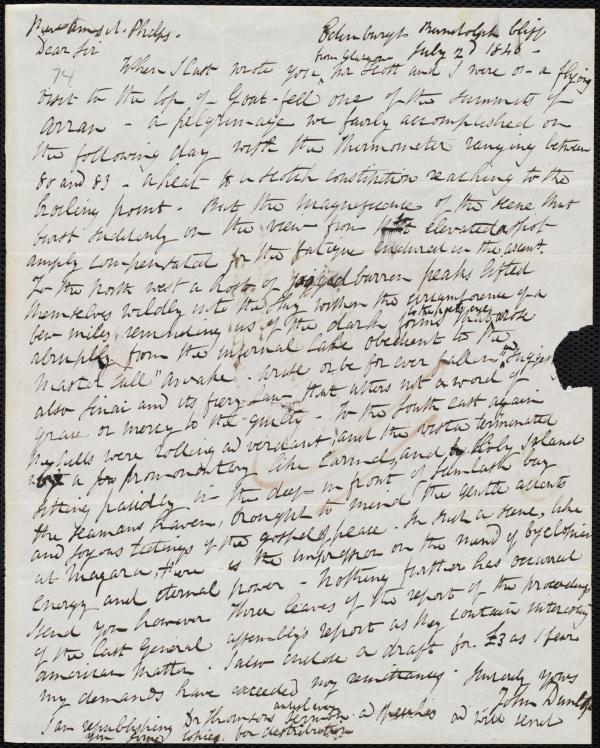 Rev Amos A. Phelps. Edinburgh Randolph Cliff
Dear Sir from Glasgow July 2d 1846 -
74 When I last wrote you, Mr Scott and I were on a flying
visit to the top of Goat-fell one of the summits of
Arran - a pilgrimage we fairly accomplished on
the following day with the Thermometer ranging between
80 and 83 - a heat to a Scotch constitution reaching to the
broiling point. But the magnificence of the scene that
burst suddenly on the view from that elevated spot
amply compensated for the fatigue endured in the ascent.
To the North west a host of jagged barren peaks lifted
themselves wildly into the sky within the circumference of a
few miles reminding us of the dark forms to the poets eye that rose
abruptly from the infernal lake obedient to the
Master call "awake - arise or be for ever fallen"
also Sinai and its fiery law that utters not a word of
grace or mercy to the guilty - To the South east again
hills were rolling and verdant, and the vista terminated
a promontory like Carmel, and Holy Island
sitting placidly in the deep in front of Lamlash bay
the seamans haven, brought to mind the gentle accents
and joyous tidings of the gospel of peace. In such a scene, like
at Niagara there is the impression on the mind of Cyclopian
energy and eternal power - Nothing further has occurred
send you however three leaves of the report of the proceedings
of the last General assembly's report as they contain interesting
American matter. I also enclose a draft for £3 as I fear
my demands have exceeded my remittances. Sincerely yours
John Dunlop
I am republishing Dr Thomsons antislavery sermon and speeches and will send
you some copies for distribution